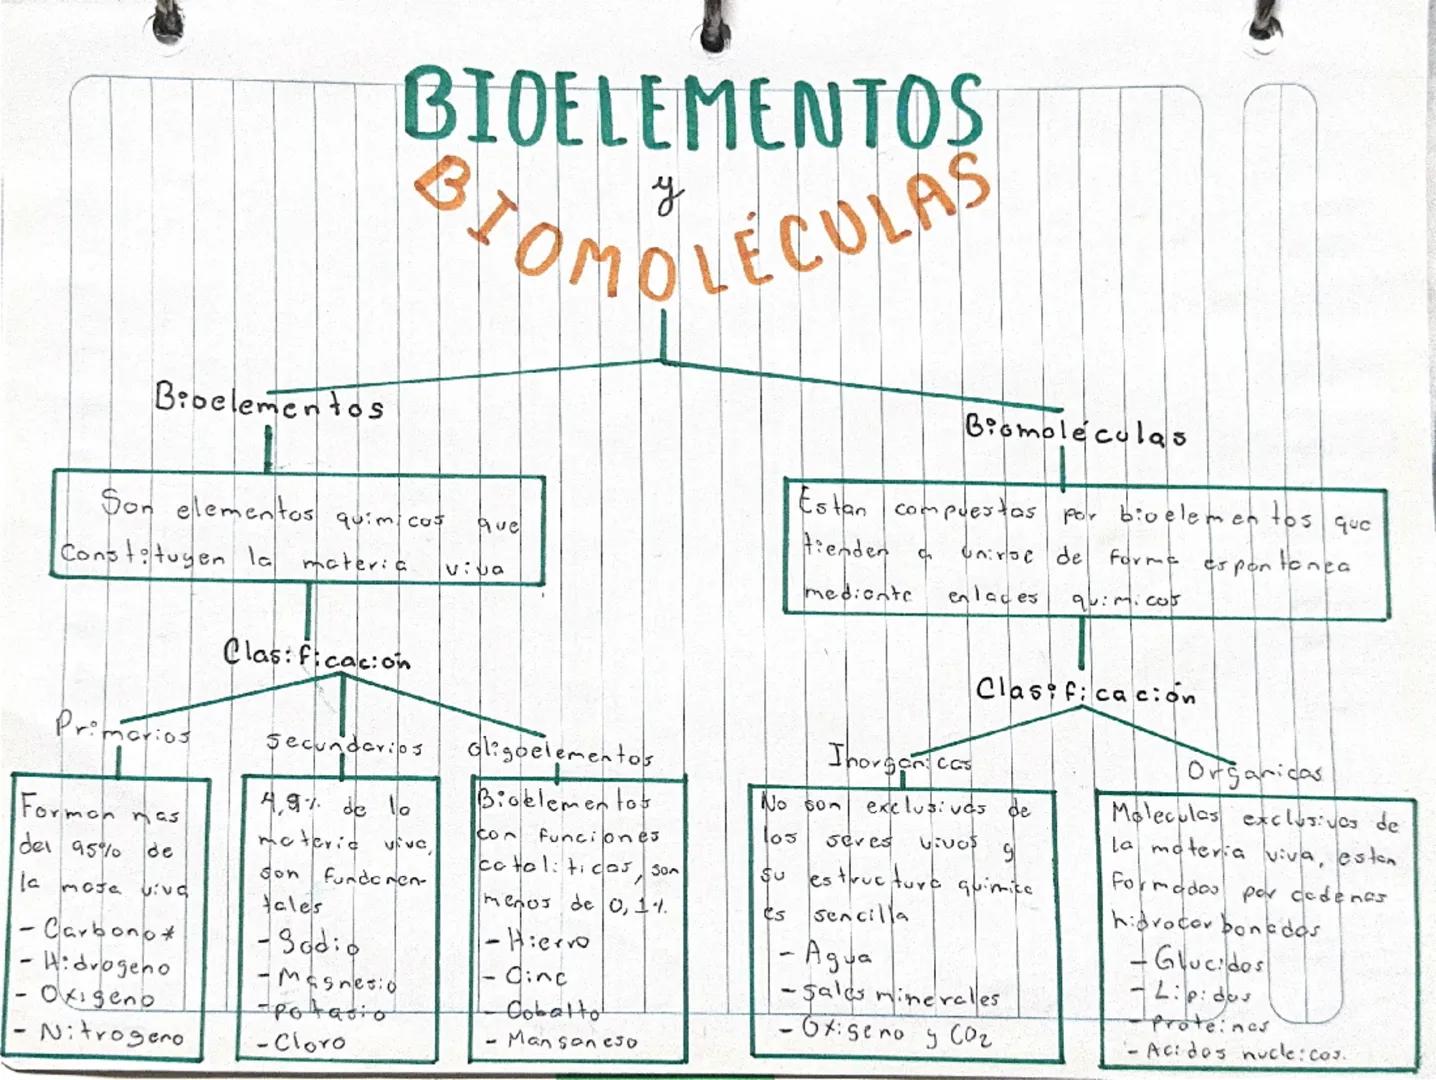 BIOELEMENTOS
y
BIOMOLÉCULAS
Bioelementos
Son elementos químicos que
Constituyen la materia viva
Clasificación
Primarios
Forman mas
del 95% de
la masa viva
- Carbono*
- Hidrogeno
- Oxigeno
- Nitrogeno
secundarios
4,9% de la
materia viva,
son fundamen-
tales
- Sodio
- Magnesio
- Potasio
- Cloro
oligoelementos
Bioelementos
con funciones
cataliticas, son
menos de 0,1%.
- Hierro
- Cinc
- Cobalto
- Manganeso
Biomoléculas
Estan compuestas por bioelementos que
tienden a unirse de forma espontanea
mediante enlaces químicos
Clasificación
Inorganicas
No son exclusivas de
los seres vivos y
su estructura quimica
es sencilla
- Agua
- Sales minerales
- Oxigeno y CO2
Organicas
Moleculas exclusivas de
la materia viva, estan
formadas por cadenas
hidrocarbonadas
- Glucidos
- Lipidos
- Proteinas
- Acidos nucleicos.